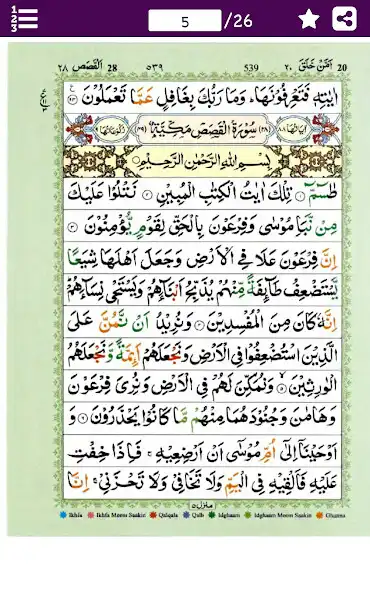 5 /26
٢٨ اَلْقَصَص 28 ٥٣٩ 539 ٢٠ اَمَّنْ خَلَقَ 20
اٰيٰتِهٖ فَتَعْرِفُوْنَهَاؕ وَمَا رَبُّكَ بِغَافِلٍ عَمَّا تَعْمَلُوْنَ ﴿۹۳﴾
اٰيَاتُهَا ٨٨ (٢٨) سُوْرَةُ الْقَصَصِ مَكِّيَّةٌ (٤٩) رُكُوْعَاتُهَا ٩
بِسْمِ اللّٰهِ الرَّحْمٰنِ الرَّحِيْمِ
طٰسٓمّٓ ﴿۱﴾ تِلْكَ اٰيٰتُ الْكِتٰبِ الْمُبِيْنِ ﴿۲﴾ نَتْلُوْا عَلَيْكَ
مِنْ نَّبَاِ مُوْسٰى وَفِرْعَوْنَ بِالْحَقِّ لِقَوْمٍ يُّؤْمِنُوْنَ ﴿۳﴾
اِنَّ فِرْعَوْنَ عَلَا فِى الْاَرْضِ وَجَعَلَ اَهْلَهَا شِيَعًا
يَّسْتَضْعِفُ طَآئِفَةً مِّنْهُمْ يُذَبِّحُ اَبْنَآءَهُمْ وَيَسْتَحْىٖ نِسَآءَهُمْؕ
اِنَّهٗ كَانَ مِنَ الْمُفْسِدِيْنَ ﴿۴﴾ وَنُرِيْدُ اَنْ نَّمُنَّ عَلَى
الَّذِيْنَ اسْتُضْعِفُوْا فِى الْاَرْضِ وَنَجْعَلَهُمْ اَئِمَّةً وَّنَجْعَلَهُمُ
الْوٰرِثِيْنَ ﴿۵﴾ وَنُمَكِّنَ لَهُمْ فِى الْاَرْضِ وَنُرِىَ فِرْعَوْنَ
وَهَامٰنَ وَجُنُوْدَهُمَا مِنْهُمْ مَّا كَانُوْا يَحْذَرُوْنَ ﴿۶﴾ وَ
اَوْحَيْنَاۤ اِلٰٓى اُمِّ مُوْسٰٓى اَنْ اَرْضِعِيْهِۚ فَاِذَا خِفْتِ
عَلَيْهِ فَاَلْقِيْهِ فِى الْيَمِّ وَلَا تَخَافِىْ وَلَا تَحْزَنِىْۚ اِنَّا
منزل ٥
Ikhfa Ikhfa Meem Saakin Qalqala Qalb Idghaam Idghaam Meem Saakin Ghunna